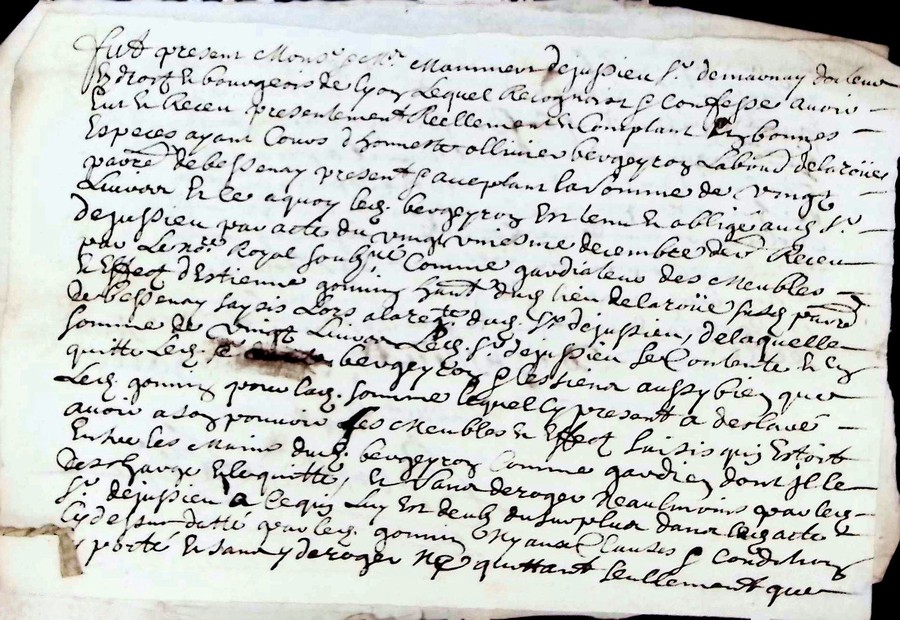 fut present Monsr Mr Mammert dejussieu sr demarnay docteur
En droit Et bourgeois de lyon Lequel Recognoist & Confesse avoir
Eut Et Receu presentement Reellement Et Comptant En bonnes
Especes ayant Cours d'honneste ollivier bergeyron Labour delaroüe
parrē de bessenay present & acceptant la somme de vingt
Livres Et Ce a quoy led. bergeyron Est tenu Et obligé aud. sr
dejussieu par acte du vingtuniesme decembre dernr Receu
par Le nore Royal soubsné Comme gardiateur des Meubles
Et Effect d'Estienne gonin hant dud. lieu de laroüe susd. parrē
de bessenay saysis Lors a la reqte dud. sr dejussieu, de laquelle
somme de vingt Livres Led. sr dejussieu se Contente Et En
quitte Led. bergeyron & les siens aussy bien que
Led. gonin pour lad. somme lequel Cy present a desclaré
avoir a son pouvoir Les Meubles Et Effect saisis qui Estoit
Entre les Mains dud. bergeyron Comme gardien dont Il le
descharge Et le quitte, Et sans deroger Neaulmoins par led.
sr dejussieu a Ce qui Luy Est deub du surplus dans led. acte
Cy dessus datté par led. gonin Ny aux Clauses & Conditions
y porté Et sans y deroger Ne quittant seullement que